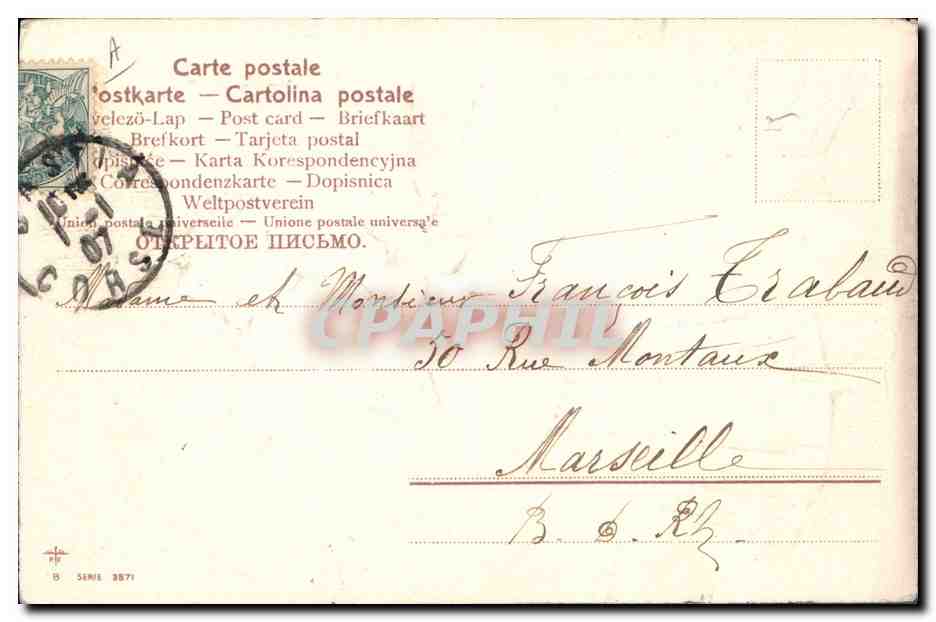 A
Carte postale
ostkarte — Cartolina postale
velezö-Lap — Post card — Briefkaart
Brefkort — Tarjeta postal
— Karta Korespondencyjna
Correspondenzkarte — Dopisnica
Weltpostverein
Union postale universelle — Unione postale universale
ОТКРЫТОЕ ПИСЬМО.
BASTIA
10
1
07
CORSE
Madame et Monsieur François Trabaud
CPAPHIL
50 Rue Montaux
Marseille
B. d. Rh.
B SERIE 3571